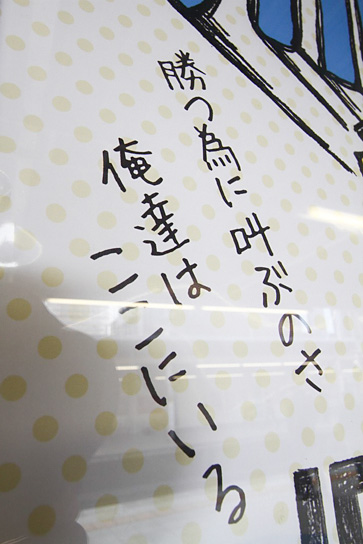 勝つ為に叫ぶのさ
俺達はここにいる